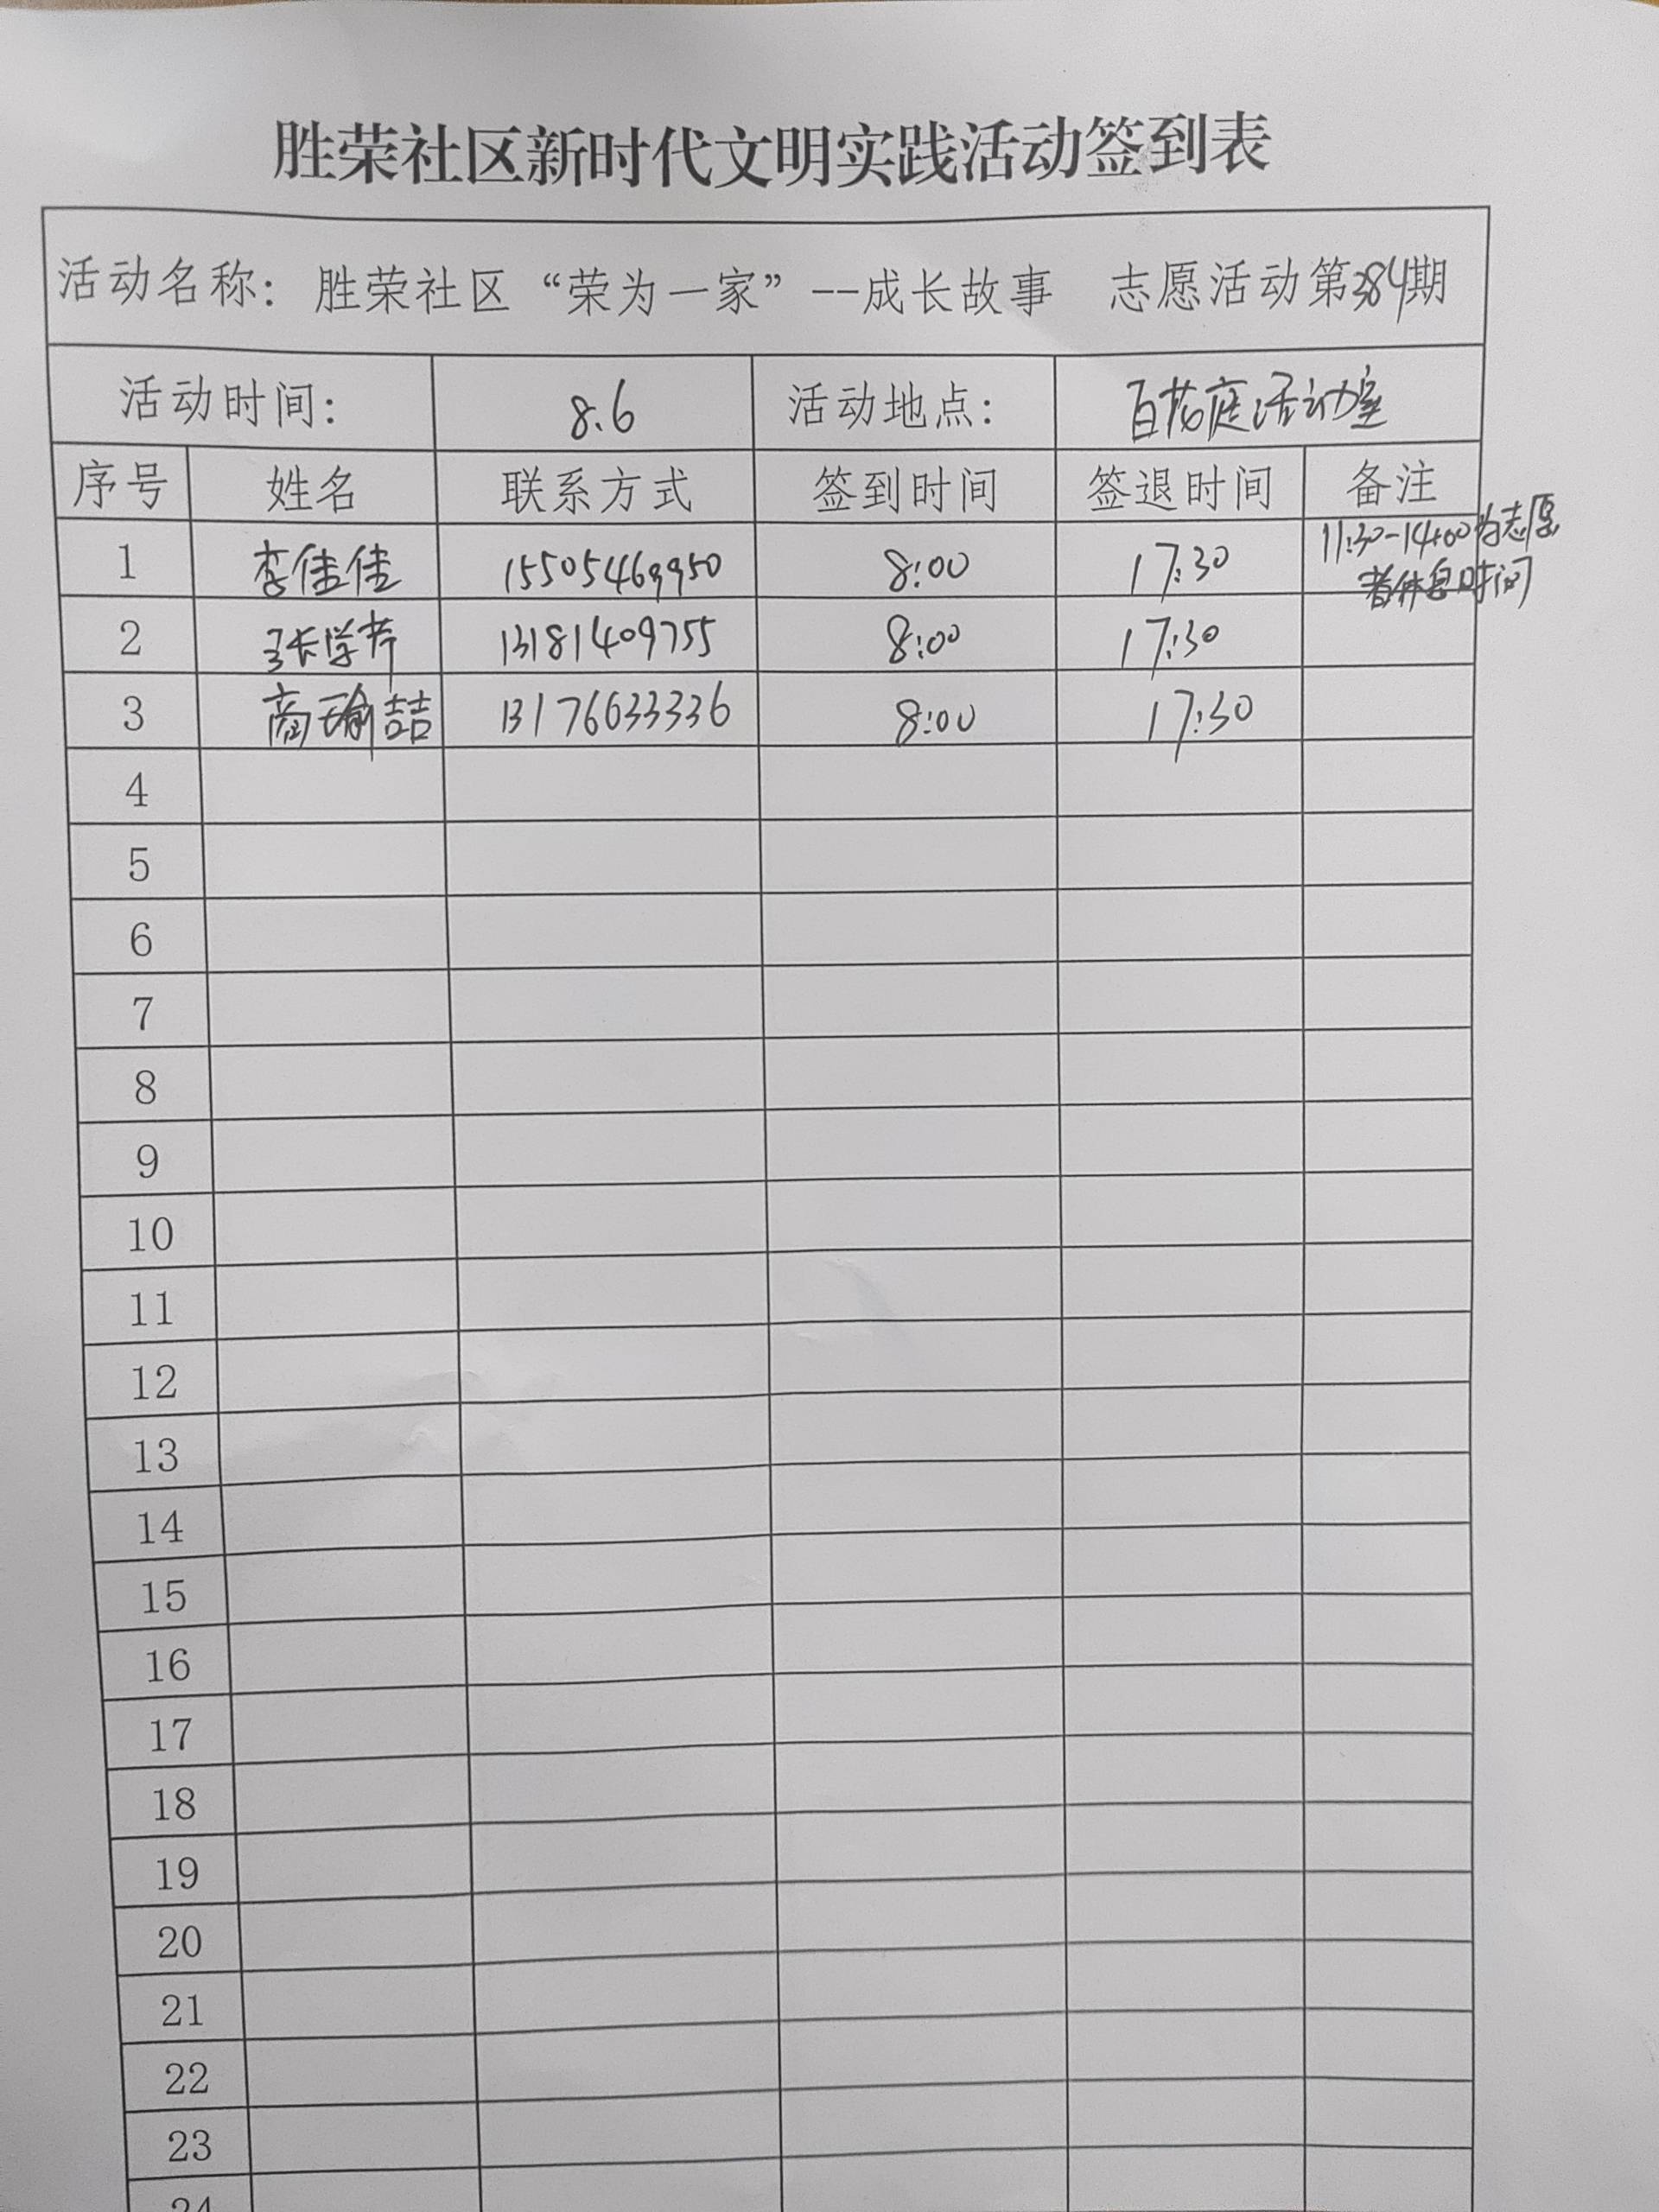 胜荣社区新时代文明实践活动签到表
活动名称：胜荣社区“荣为一家”--成长故事 志愿活动第384期
活动时间： 8.6 活动地点： 百花庭活动室
序号 姓名 联系方式 签到时间 签退时间 备注
1 李佳佳 15505469950 8:00 17:30 11:30-14:00为志愿
者休息时间
2 张学芹 13181409755 8:00 17:30
3 商瑜喆 13176633336 8:00 17:30
4
5
6
7
8
9
10
11
12
13
14
15
16
17
18
19
20
21
22
23
24